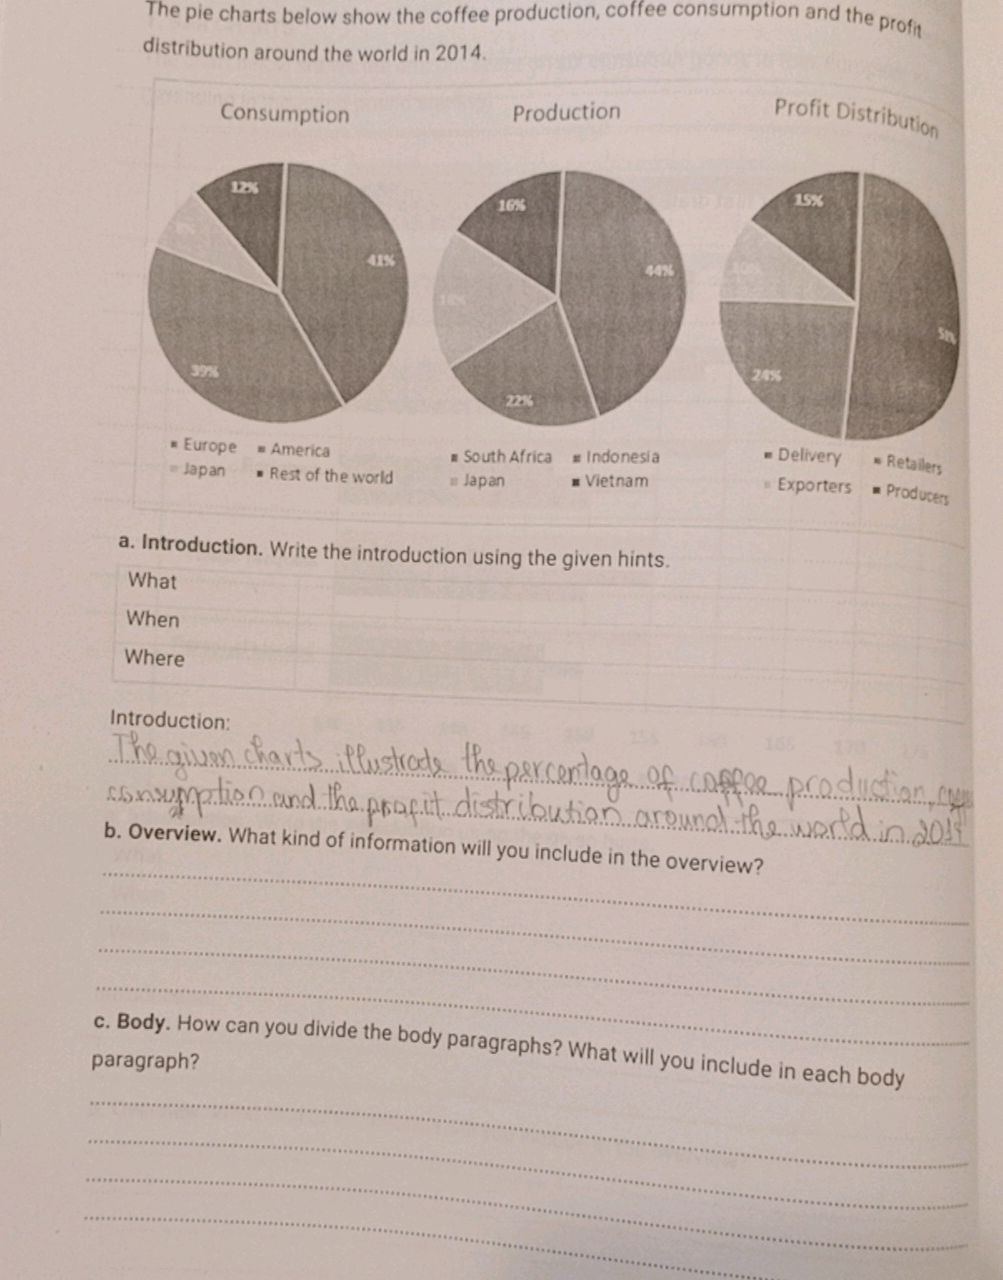 The pie charts below show the coffee production, coffee consumption and the profit
distribution around the world in 2014.
Consumption Production Profit Distribution
12% 41% 39%
16% 44% 22%
15% 24%
Europe America
Japan Rest of the world
South Africa Indonesia
Japan Vietnam
Delivery Retailers
Exporters Producers
a. Introduction. Write the introduction using the given hints.
What
When
Where
Introduction:
The given charts illustrade the percentage of coffee production,
consumption and the profit distribution around the world in 2014
b. Overview. What kind of information will you include in the overview?
c. Body. How can you divide the body paragraphs? What will you include in each body
paragraph?